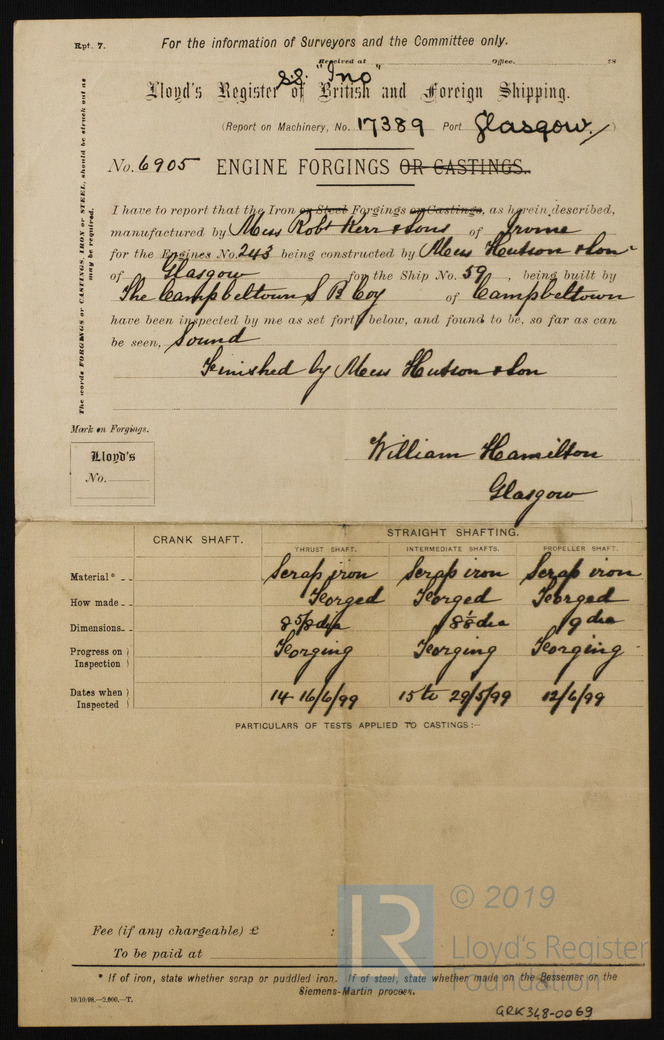 Rpt. 7.
For the information of Surveyors and the Committee only.
Received at Office. 18
S.S. "Ino"
Lloyd's Register of British and Foreign Shipping.
(Report on Machinery, No. 17389 Port Glasgow)
No. 6905 ENGINE FORGINGS OR CASTINGS.
The words FORGINGS or CASTINGS, IRON or STEEL, should be struck out as may be required.
I have to report that the Iron or Steel Forgings or Castings, as herein described,
manufactured by Mess Robt Kerr & Sons of Irvine
for the Engines No. 243 being constructed by Mess Hutson & Son
of Glasgow for the Ship No. 59, being built by
The Campbeltown S B Coy of Campbeltown
have been inspected by me as set forth below, and found to be, so far as can
be seen, Sound
Finished by Mess Hutson & Son
Mark on Forgings.
Lloyd's
No.
William Hamilton
Glasgow
CRANK SHAFT. STRAIGHT SHAFTING.
THRUST SHAFT. INTERMEDIATE SHAFTS. PROPELLER SHAFT.
Material* Scrap iron Scrap iron Scrap iron
How made Forged Forged Forged
Dimensions 8 5/8 dia 8 1/8 dia 9 dia
Progress on Inspection Forging Forging Forging
Dates when Inspected 14-16/6/99 15 to 29/5/99 12/6/99
PARTICULARS OF TESTS APPLIED TO CASTINGS:—
Fee (if any chargeable) £ :
To be paid at
* If of iron, state whether scrap or puddled iron. If of steel, state whether made on the Bessemer or the
Siemens-Martin process.
10/10/98.—2,000.—T.
LR © 2019
Lloyd's Register
Foundation
GRK348-0069